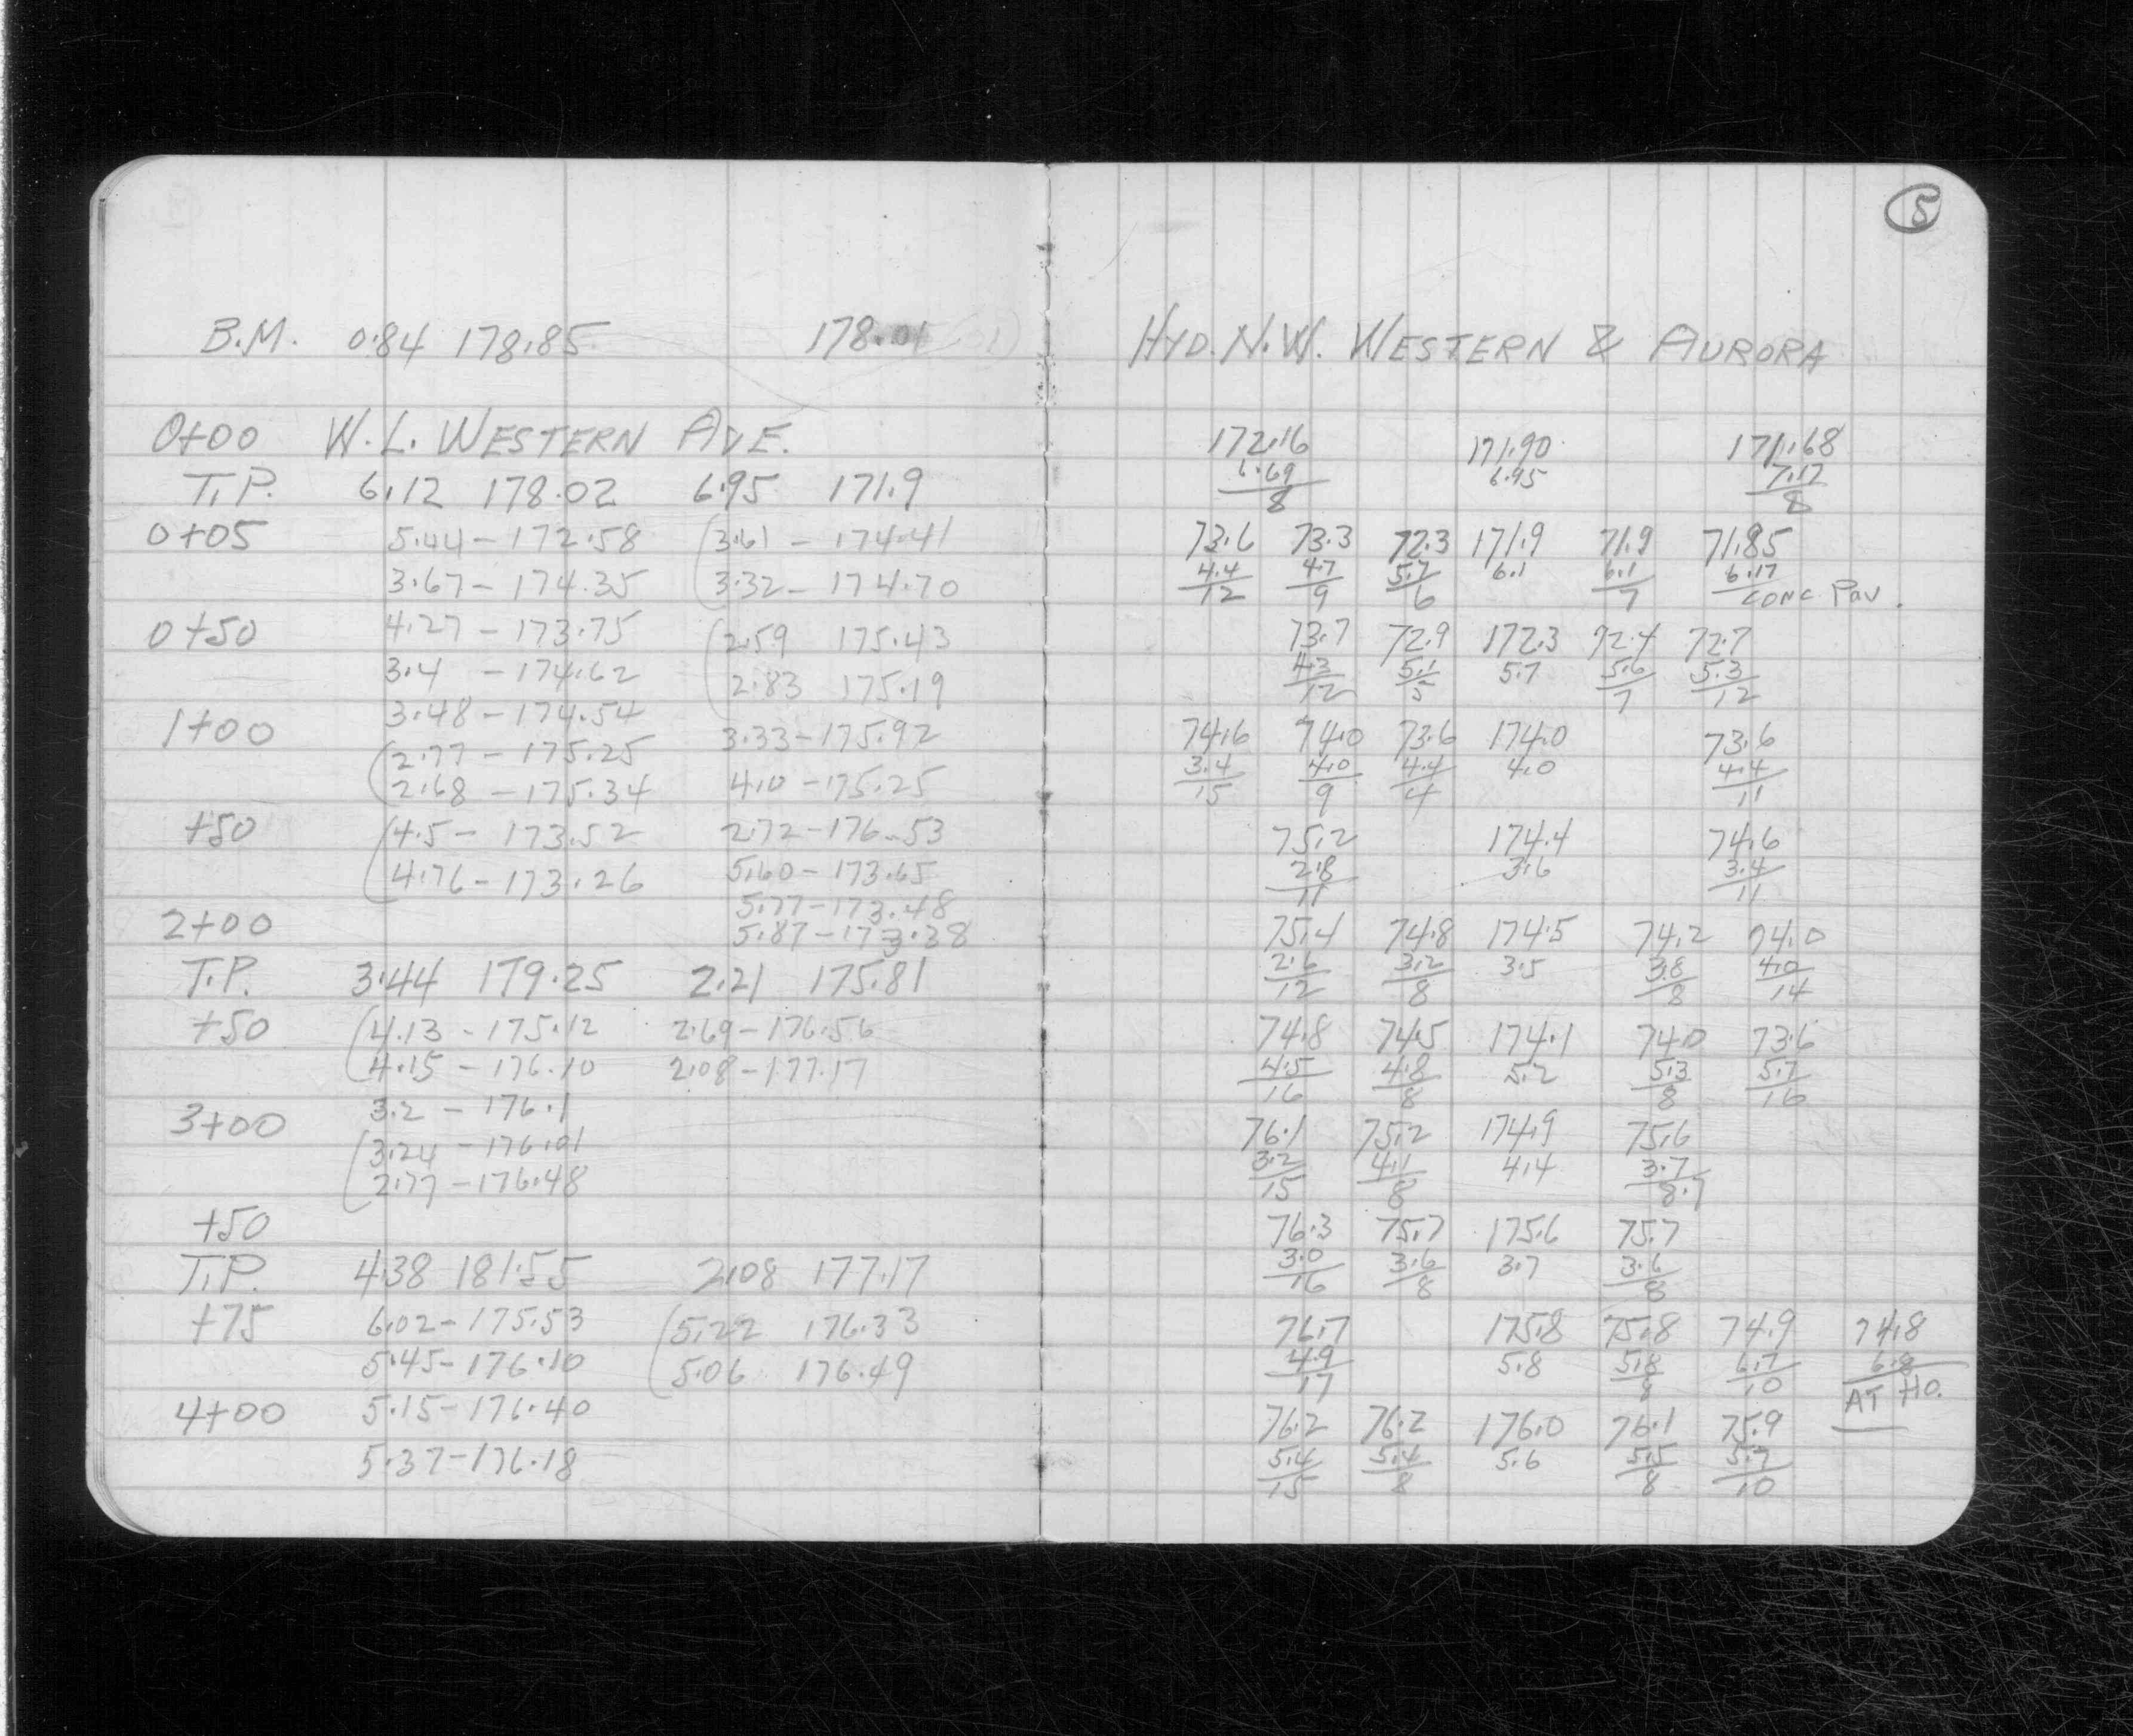 5
B.M. 0.84 178.85 178.01
0+00 W.L. WESTERN AVE.
T.P. 6.12 178.02 6.95 171.9
0+05 5.44 - 172.58 (3.61 - 174.41
3.67 - 174.35 (3.32 - 174.70
0+50 4.27 - 173.75 (2.59 175.43
3.4 - 174.62 (2.83 175.19
3.48 - 174.54
1+00 3.33 - 175.92
(2.77 - 175.25
(2.68 - 175.34 4.0 - 175.25
+50 (4.5 - 173.52 2.72 - 176.53
(4.76 - 173.26 5.60 - 173.65
5.77 - 173.48
2+00 5.87 - 173.38
T.P. 3.44 179.25 2.21 175.81
+50 (4.13 - 175.12 2.69 - 176.56
(4.15 - 176.10 2.08 - 177.17
3.2 - 176.1
3+00
(3.24 - 176.01
(2.77 - 176.48
+50
T.P. 4.38 181.55 2.08 177.17
+75 6.02 - 175.53 (5.22 176.33
5.45 - 176.10 (5.06 176.49
4+00 5.15 - 176.40
5.37 - 176.18
HYD. N.W. WESTERN & AURORA
172.16 171.90 171.68
6.69 6.95 7.17
8 8
73.6 73.3 72.3 171.9 71.9 71.85
4.4 4.7 5.7 6.1 6.1 6.17
12 9 6 7 CONC. PAV.
73.7 72.9 172.3 72.4 72.7
4.3 5.1 5.7 5.6 5.3
12 5 7 12
74.6 74.0 73.6 174.0 73.6
3.4 4.0 4.4 4.0 4.4
15 9 4 11
75.2 174.4 74.6
2.8 3.6 3.4
11 11
75.4 74.8 174.5 74.2 74.0
2.6 3.2 3.5 3.8 4.0
12 8 8 14
74.8 74.5 174.1 74.0 73.6
4.5 4.8 5.2 5.3 5.7
16 8 8 16
76.1 75.2 174.9 75.6
3.2 4.1 4.4 3.7
15 8 8.7
76.3 75.7 175.6 75.7
3.0 3.6 3.7 3.6
16 8 8
76.7 175.8 75.8 74.9 74.8
4.9 5.8 5.8 6.7 6.8
17 8 10 AT HO.
76.2 76.2 176.0 76.1 75.9
5.4 5.4 5.6 5.5 5.7
15 8 8 10